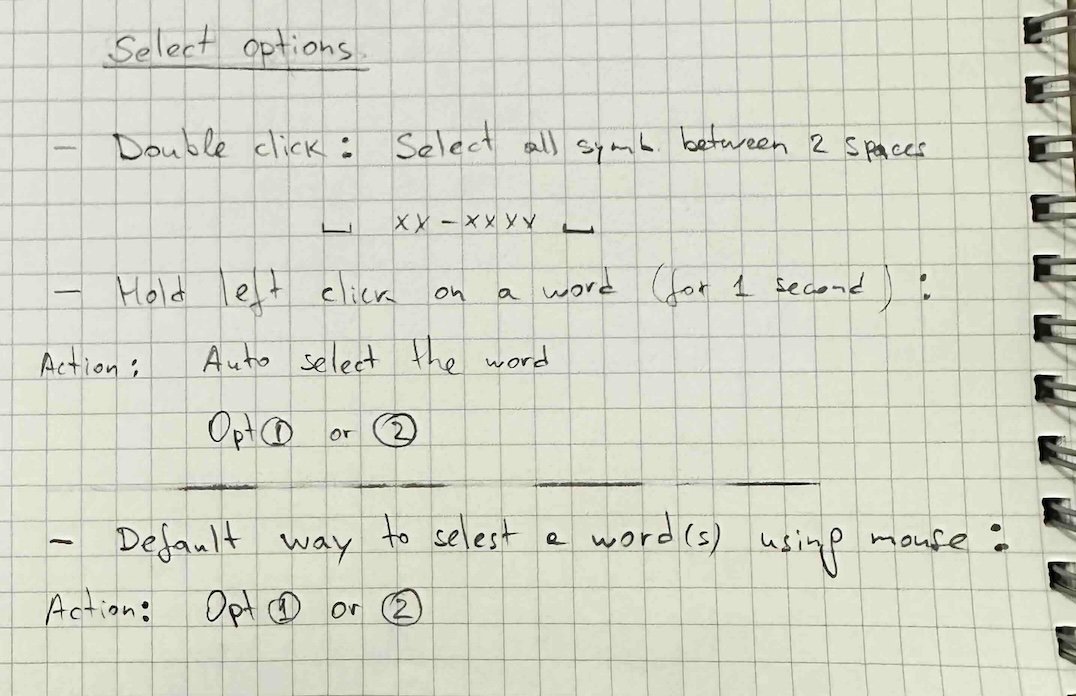 Select options.
- Double click: Select all symb. between 2 spaces
⎵ xx-xxxx ⎵
- Hold left click on a word (for 1 second):
Action: Auto select the word
Opt ① or ②
- Default way to selest a word(s) using mouse:
Action: Opt ① or ②